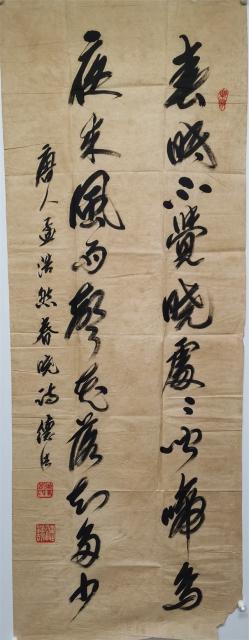 春眠不覺晓處々闻啼鳥
夜来風雨聲花落知多少
唐人孟浩然春晓詩德